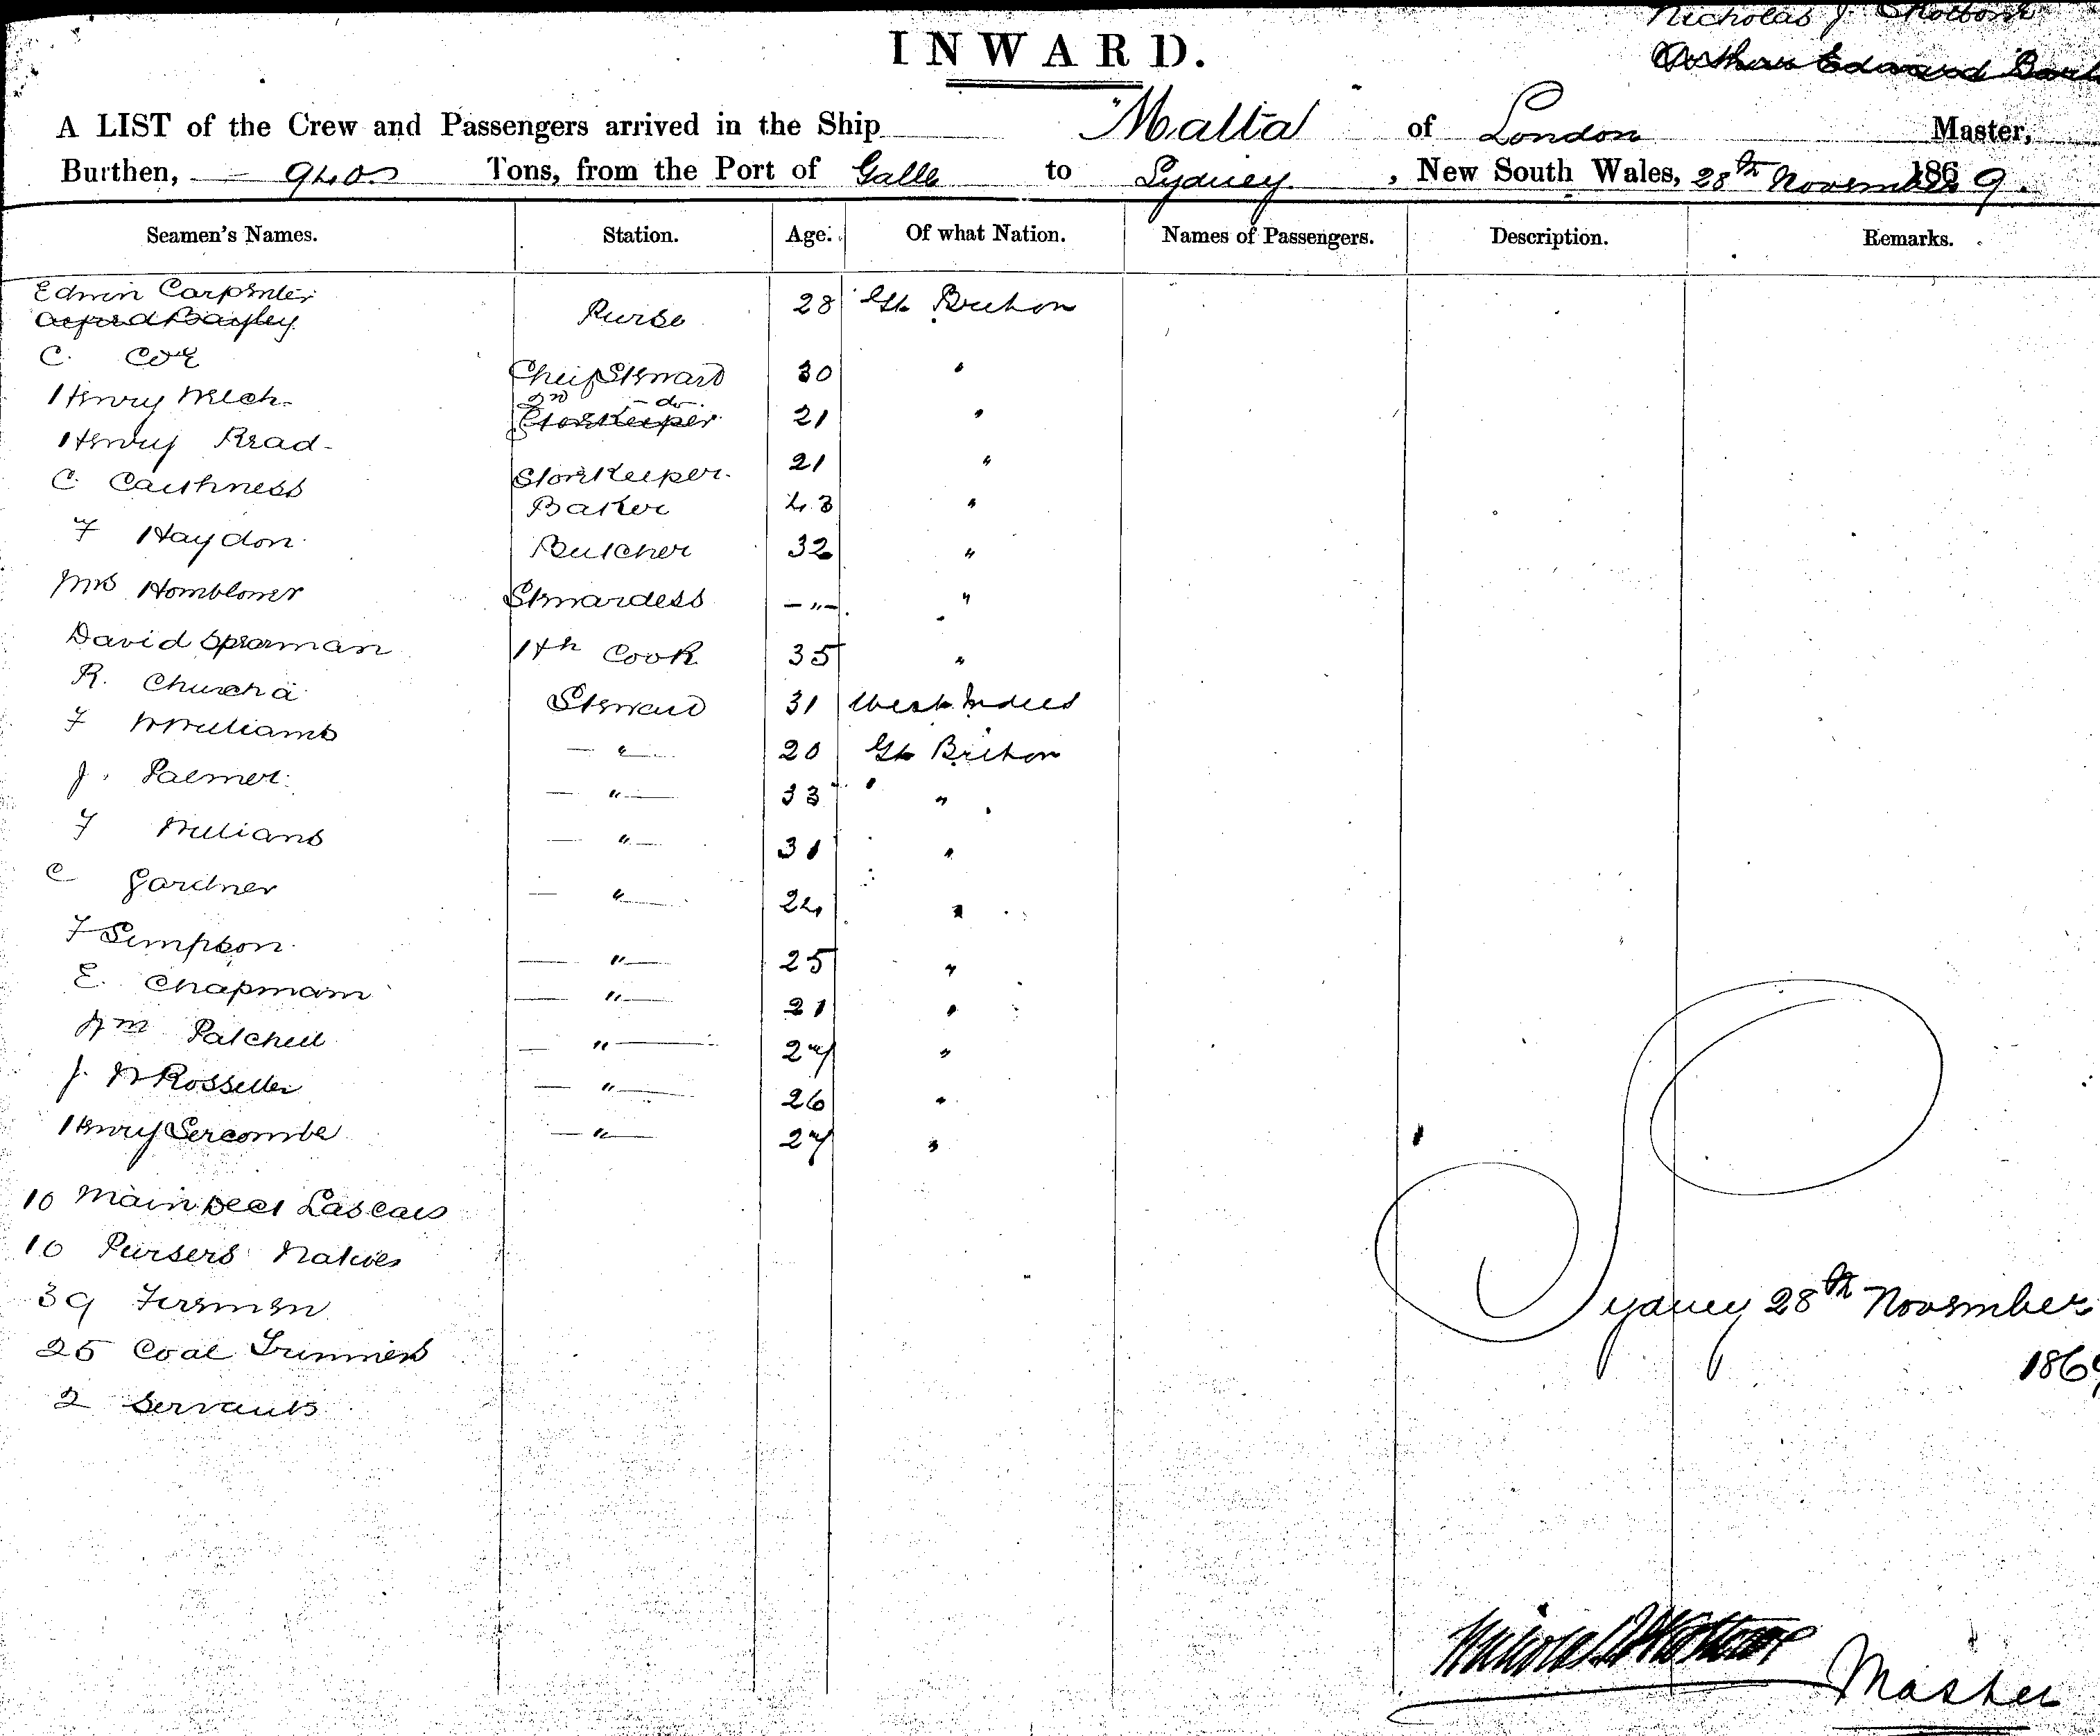 Nicholas J.
INWARD.
Arthur Edward
A LIST of the Crew and Passengers arrived in the Ship Malta of London Master,
Burthen, 940 Tons, from the Port of Galle to Sydney, New South Wales, 28th November 1869.
Seamen's Names. Station. Age. Of what Nation. Names of Passengers. Description. Remarks.
Edwin Carpenter
Alfred Bayley Purser 28 Gt Britton
C. Cox Cheif Steward 30 "
Henry Welch 2nd do.
Storekeeper 21 "
Henry Read Storekeeper. 21 "
C. Caithness Baker 43 "
F Haydon Butcher 32 "
Mrs Hornblower Stewardess — " — "
David Spearman 1th Cook 35 "
R. Steward 31 West Indies
F Williams — " — 20 Gt Britton
J. Palmer — " — 33 "
F Williams — " — 31 "
C Gardner — " — 24 "
F Simpson — " — 25 "
E. Chapmam — " — 21 "
Wm Patchell — " — 27 "
J. W Rosseter — " — 26 "
Henry Sercombe — " — 27 "
10 Main Deck Lascars
10 Pursers Natives
39 Firemen
25 Coal Trimmers
2 Servants
Sydney 28th November
1869
Master